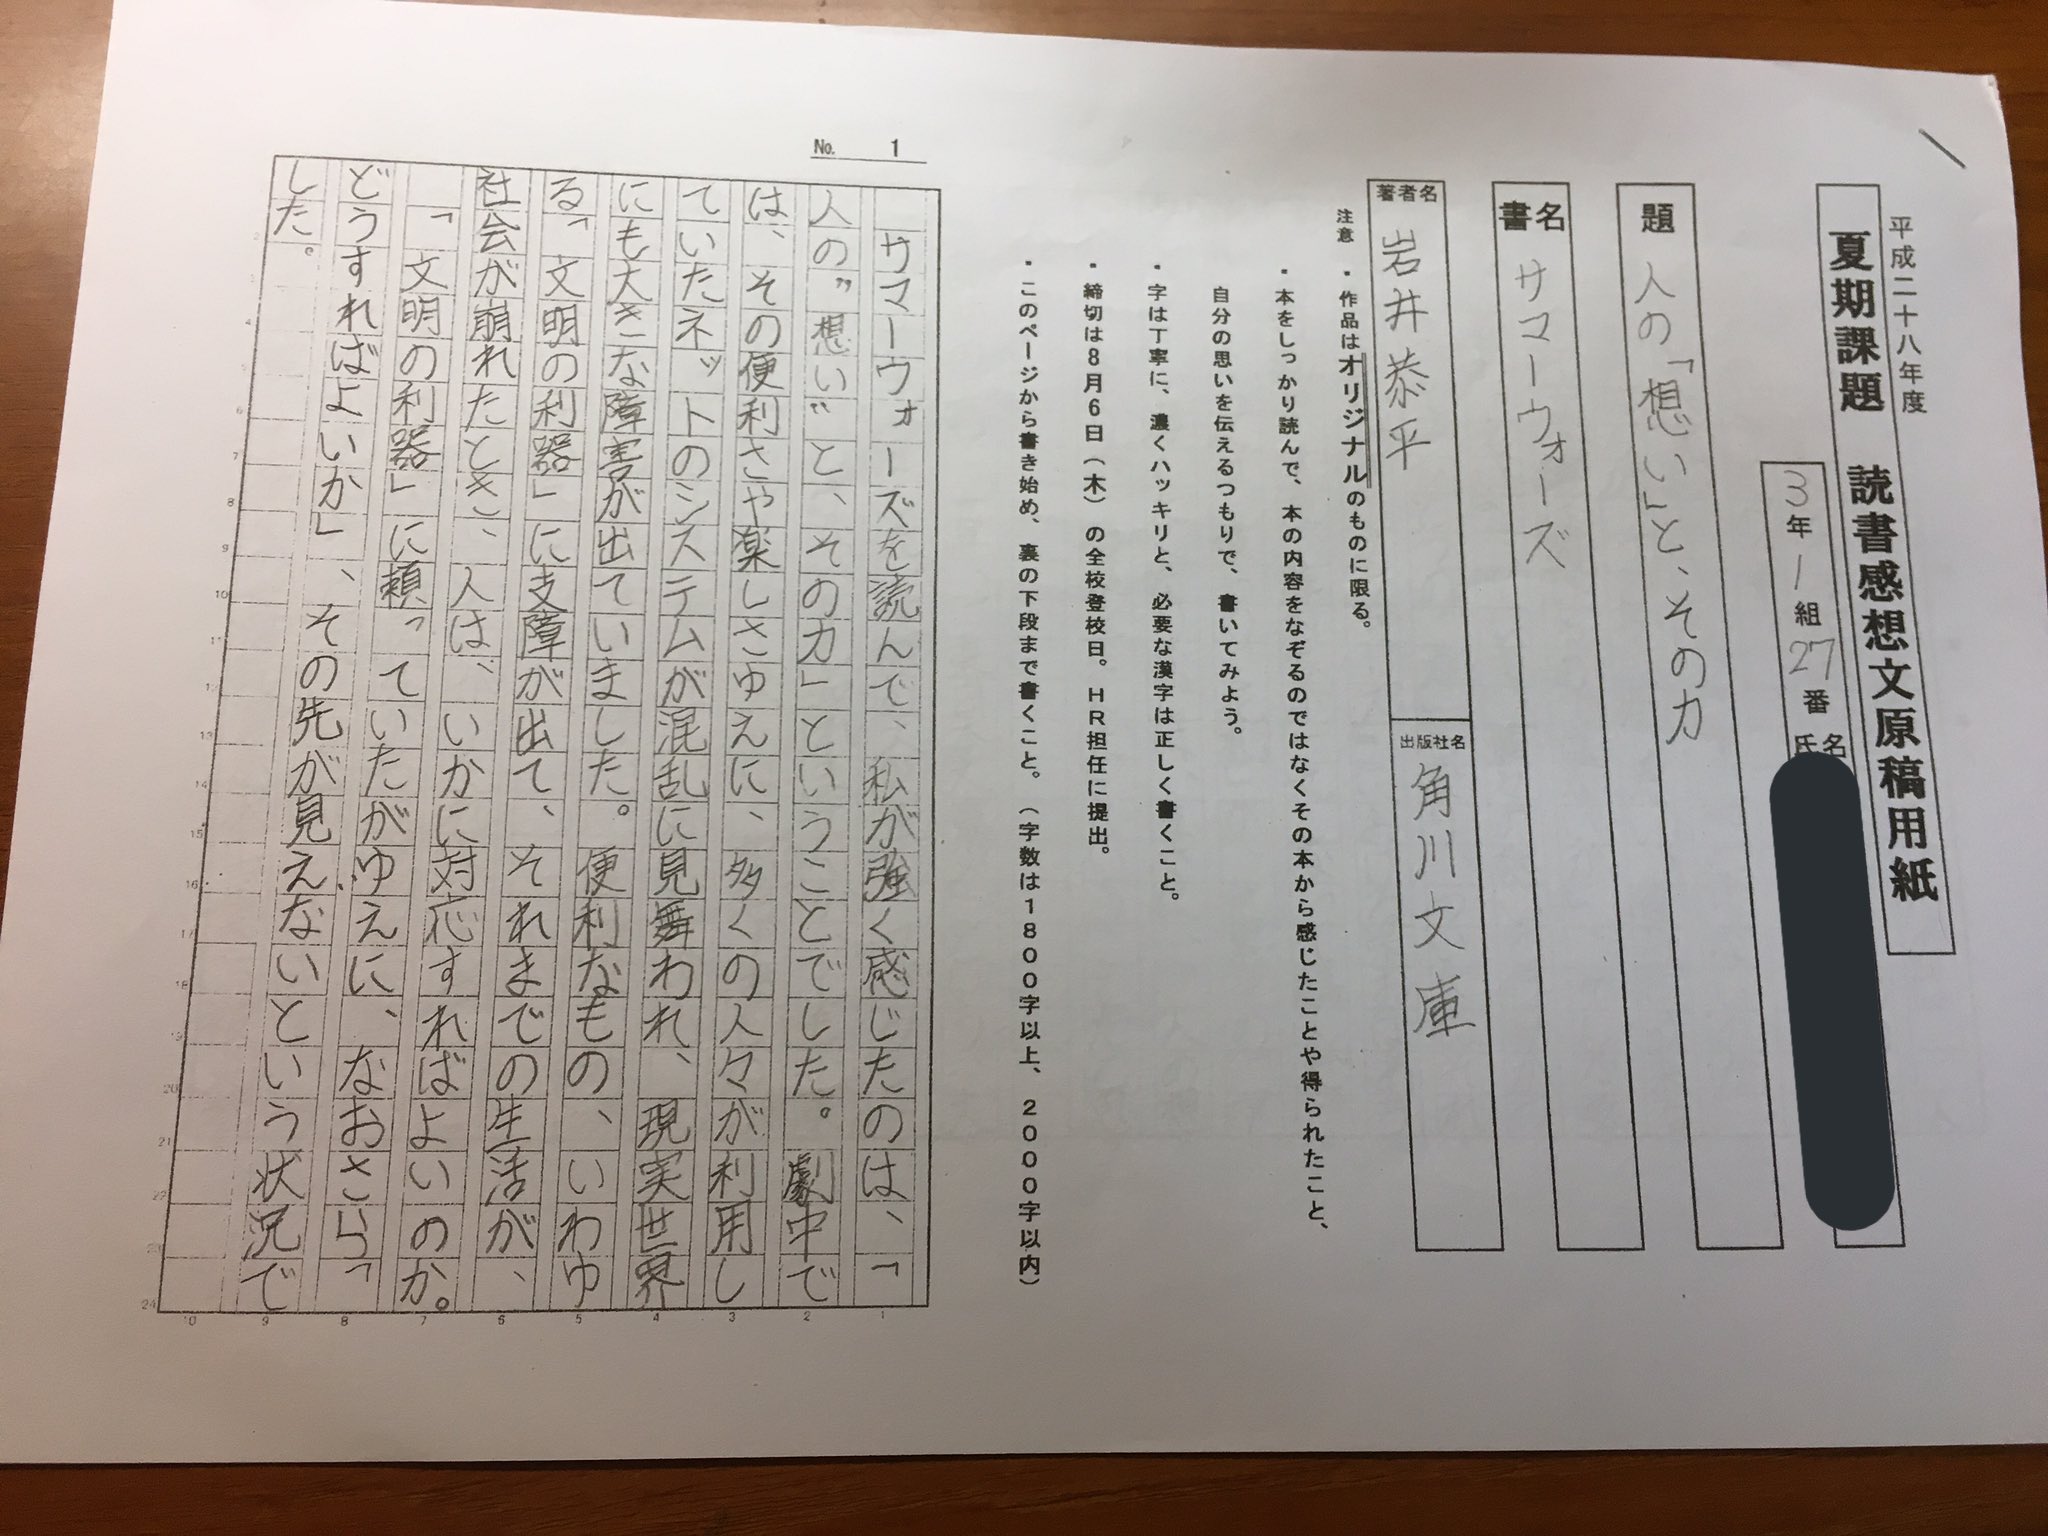 平成二十八年度
夏期課題　読書感想文原稿用紙
3年1組27番　氏名
題　人の「想い」と、その力
書名　サマーウォーズ
著者名　岩井恭平　出版社名　角川文庫
注意　・作品はオリジナルのものに限る。
・本をしっかり読んで、本の内容をなぞるのではなくその本から感じたことや得られたこと、
自分の思いを伝えるつもりで、書いてみよう。
・字は丁寧に、濃くハッキリと、必要な漢字は正しく書くこと。
・締切は8月6日（木）の全校登校日。HR担任に提出。
・このページから書き始め、裏の下段まで書くこと。（字数は1800字以上、2000字以内）
No. 1
サマーウォーズを読んで、私が強く感じたのは、「
人の〝想い〟と、その力」ということでした。劇中で
は、その便利さや楽しさゆえに、多くの人々が利用し
ていたネットのシステムが混乱に見舞われ、現実世界
にも大きな障害が出ていました。便利なもの、いわゆ
る「文明の利器」に支障が出て、それまでの生活が、
社会が崩れたとき、人は、いかに対応すればよいのか。
「文明の利器」に頼っていたがゆえに、なおさら「
どうすればよいか」、その先が見えないという状況で
した。
2
4
6
7
8
9
10
11
12
13
14
15
16
17
18
19
20
21
22
23
24
1
2
3
4
5
6
7
8
9
10